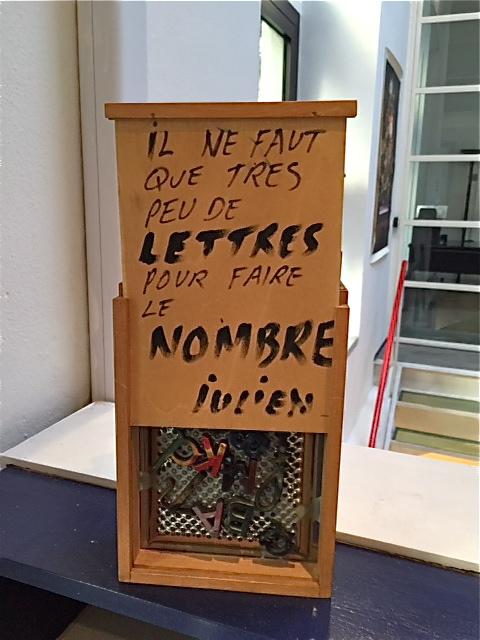 iL NE FAUT
QUE TRES
PEU DE
LETTRES
POUR FAIRE
LE
NOMBRE
julien